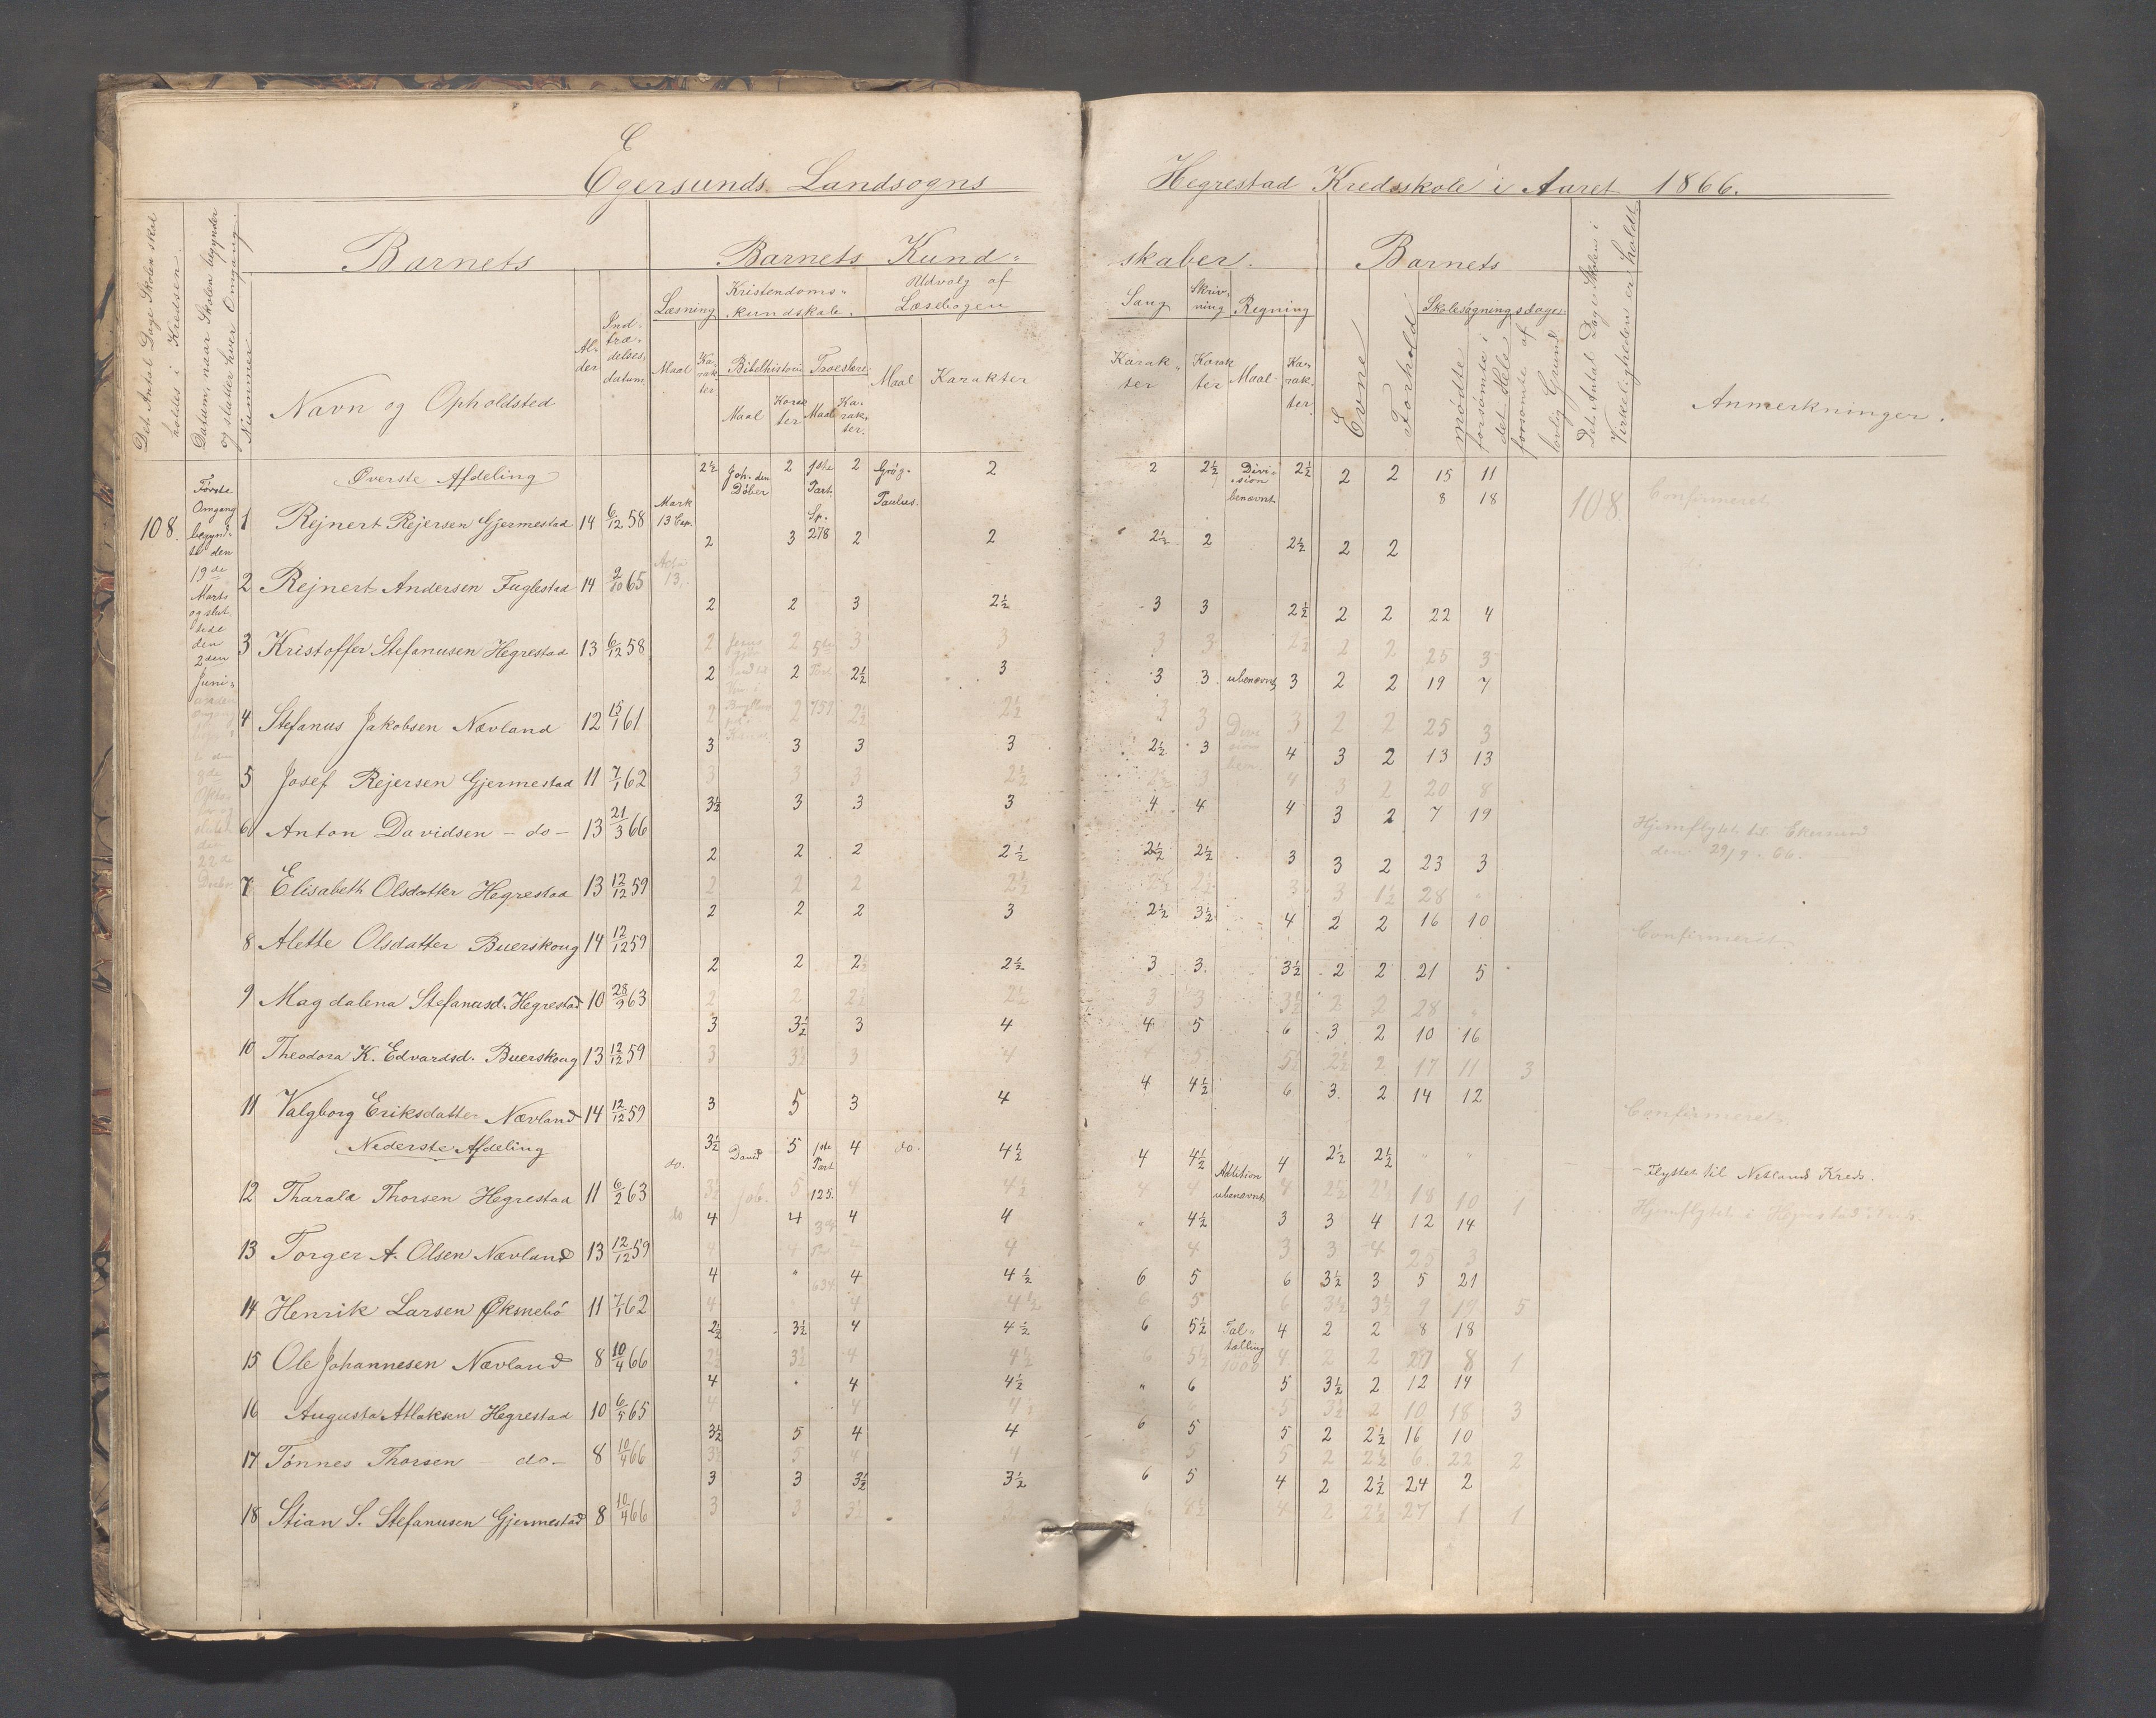 Egersunds Landsogns
Hegrestad Kredsskole i Aaret 1866.
Det Antal Dage Skolen skal holdes i Kredsen.
Datum, naar Skolen begynder og slutter hver Omgang.
Nummer.
Barnets
Navn og Opholdsted
Al-
der
Ind-
træ-
delses-
datum.
Barnets Kund-
skaber.
Læsning
Maal
Ka-
rak-
ter.
Kristendoms-
kundskab.
Bibelhistorie
Troeslære
Maal
Karak
ter
Maal
Ka-
rak-
ter.
Udvalg af
Læsebogen
Maal
Karakter
Sang
Karak-
ter
Skriv-
ning
Karak
ter
Regning
Maal
Ka-
rak-
ter
Barnets
Evne
Forhold
Skolesøgningsdage.
mødte
forsømte i det Hele
forsømte af lovlig Grund
Det Antal Dage Skolen i Virkeligheden er holdt.
Anmerkninger.
Øverste Afdeling
108.
Første
Omgang
begynd-
te den
19de
Marts
og slut-
tede
den
2den
Juni
1 Rejnert Rejersen Gjermestad 14 6/12 58
Mark
13 Cap.
2½ Joh. den Døber 2 1ste Part. 2 Grøg. Paulus. 2
Sp. 278
2 2½ Division benævnt 2½ 2 2 15 11
8 18
108 Confirmeret
2 Rejnert Andersen Fuglestad 14 9/10 65
2 3 2 2 2½ 2 2½ 2 2
3 Kristoffer Stefanusen Hegrestad 13 6/12 58
2 2 3 2½ 3 3 2½ 2 2 22 4
2 2 3 3 3 3 2½ 2 2 25 3
4 Stefanus Jakobsen Nævland 12 15/1 61
2 2 2½ 3 3 3 ubenævnt 3 2 2 19 7
2 2 2½ 2½ 3 3 3 2 2 25 3
5 Josef Rejersen Gjermestad 11 7/1 62
3 3 3 3 2½ 3 4 3 2 13 13
3 3 3 2½ 2½ 3 4 3 2 20 8
6 Anton Davidsen - do - 13 21/3 66
3½ 3 3 3 4 4 4 3 2 7 19
Hjemflyttet til Ekersund
den 29/9. 66.
7 Elisabeth Olsdatter Hegrestad 13 12/12 59
2 2 2 2½ 2½ 2½ 3 3 2 23 3
2 2 2 2½ 2½ 2½ 3 3 1½ 28 "
8 Alette Olsdatter Buerskoug 14 12/12 59
2 2 2 3 2½ 3½ 4 2 2 16 10
Confirmeret.
9 Magdalena Stefanusd. Hegrestad 10 28/9 63
2 2 2½ 2½ 3 3 3½ 2 2 21 5
2 2 2½ 2½ 3 3 3½ 2 2 28 "
10 Theodora K. Edvardsd. Buerskoug 13 12/12 59
3 3½ 3 4 4 5 6 3 2 10 16
3 3½ 3 4 5 5½ 2½ 2 17 11 3
11 Valgborg Eriksdatter Nævland 14 12/12 59
3 5 3 4 4 4½ 6 3 2 14 12
Confirmeret.
Nederste Afdeling
12 Tharald Thorsen Hegrestad 11 6/2 63
do. 3½ David 5 1ste Part 4 do. 4½ 4 4½ Addition ubenævnt 4 2½ 2½ " "
3½ Job. 5 125. 4 4½ 4 4 4 2½ 2½ 18 10 1
- Flyttet til Netland Kreds.
13 Torger A. Olsen Nævland 13 12/12 59
do 4 4 4 4 " 4½ 3 3 4 12 14
4 4 4 4 4 3 3 4 25 3
14 Henrik Larsen Øksnebø 11 7/1 62
4 " 4 4½ 6 5 6 3½ 3 5 21
4 4 4½ 6 5 6 3½ 3½ 9 19 5
15 Ole Johannesen Nævland 8 10/4 66
2½ 3½ 4 4½ 6 5½ Taltælling 4 2 2 8 18
2½ 3½ 4 4½ 6 5½ 1000 4 2 2 27 8 1
16 Augusta Atlaksen Hegrestad 10 6/5 65
4 4 4½ " 6 5 3½ 2 12 14
4 4 5 3½ 2 10 18 3
17 Tønnes Thorsen - do - 8 10/4 66
3½ 5 4 4 6 5 5 2 2½ 16 10
3½ 5 4 4 6 5 5 2 2½ 6 22 2
18 Stian S. Stefanusen Gjermestad 8 10/4 66
3 3 3½ 3½ 6 5 4 2 2½ 24 2
3 3 3½ 4 2 2½ 27 1 1